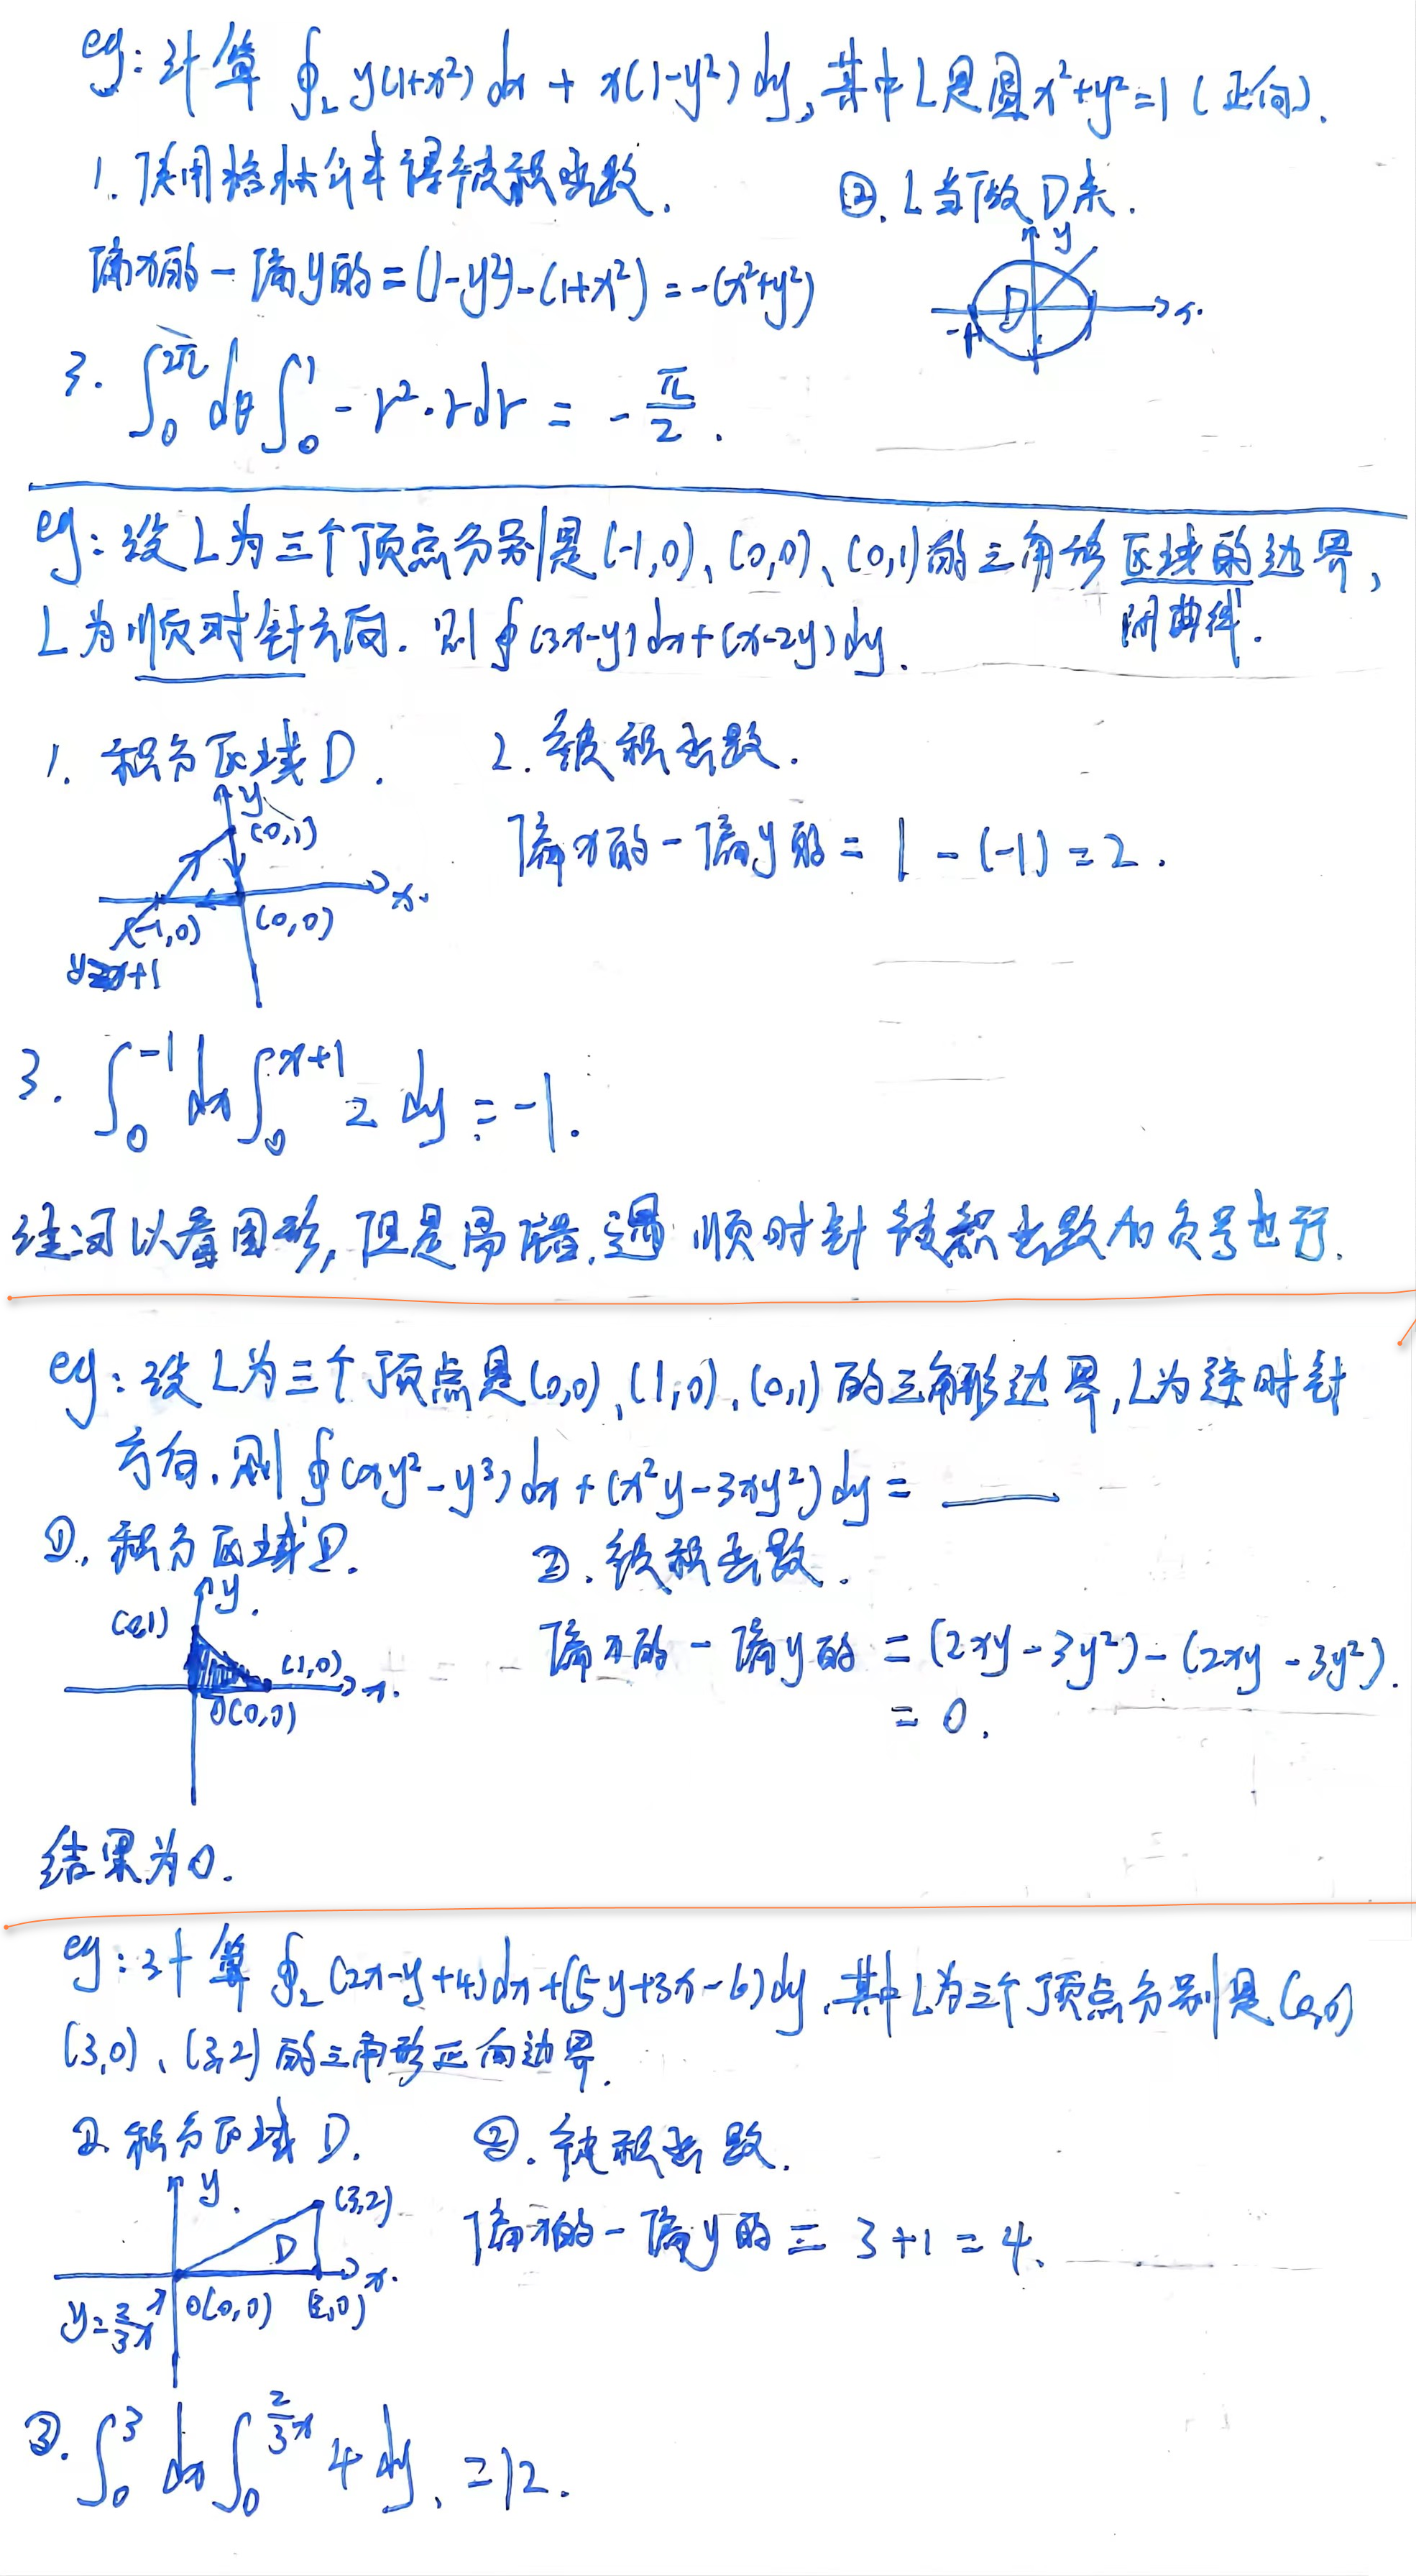 eg: 计算 ∮_L y(1+x²)dx + x(1-y²)dy, 其中L是圆x²+y²=1 (正向).
1. 使用格林公式得被积函数.
②. L当做D来.
偏x的 - 偏y的 = (1-y²)-(1+x²) = -(x²+y²)
y
D
-1
1
x.
3. ∫₀^{2π} dθ ∫₀^1 -r²·rdr = -π/2.
eg: 设L为三个顶点分别是(-1,0)、(0,0)、(0,1)的三角形区域的边界,
闭曲线.
L为顺时针方向. 则∮(3x-y)dx+(x-2y)dy.
1. 积分区域D.
2. 被积函数.
y
(0,1)
偏x的 - 偏y的 = 1 - (-1) = 2.
x.
(-1,0)
(0,0)
y=x+1
3. ∫₀^{-1} dx ∫₀^{x+1} 2 dy = -1.
注:可以看图形, 但是易错, 遇 顺时针 被积函数加负号也行.
eg: 设L为三个顶点是(0,0)、(1,0)、(0,1)的三角形边界, L为逆时针
方向. 则∮(xy²-y³)dx+(x²y-3xy²)dy = ____
①. 积分区域D.
②. 被积函数.
y.
(0,1)
偏x的 - 偏y的 = (2xy-3y²)-(2xy-3y²).
(1,0)
x.
O(0,0)
= 0.
结果为0.
eg: 计算 ∮_L (2x-y+4)dx+(5y+3x-6)dy, 其中L为三个顶点分别是(0,0)
(3,0)、(3,2)的三角形正向边界.
①. 积分区域D.
②. 被积函数.
y.
(3,2)
D
偏x的 - 偏y的 = 3+1 = 4.
x.
O(0,0)
(3,0)
y=2/3x
③. ∫₀^3 dx ∫₀^{2/3x} 4 dy. = 12.